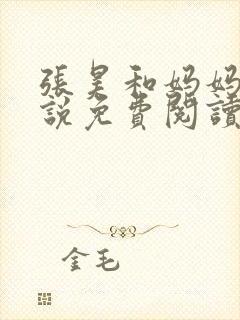 張昊和妈妈
說免費閱讀
金毛